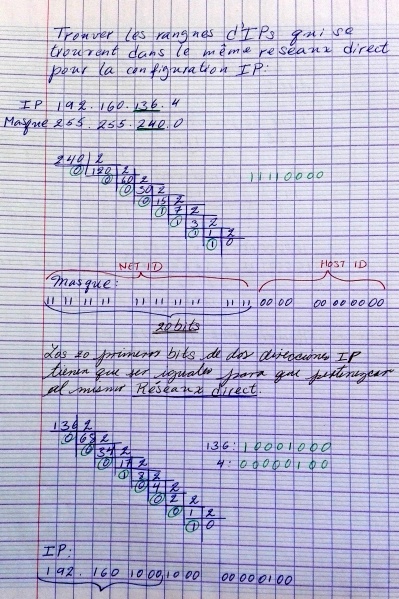 Trouver les rangnes d'IPs qui se
trouvent dans le même reseaux direct
pour la configuration IP:
IP 192.160.136.4
Masque 255.255.240.0
240 2
0 120 2
0 60 2
0 30 2
0 15 2
1 7 2
1 3 2
1 1 2
1 0
11110000
NET ID HOST ID
Masque:
11 11 11 11 11 11 11 11 11 11 00 00 00 00 00 00
20 bits
Los 20 primeros bits de dos direcciones IP
tienen que ser iguales para que pertenezcan
al mismo Réseaux direct.
136 2
0 68 2
0 34 2
0 17 2
1 8 2
0 4 2
0 2 2
0 1 2
1 0
136: 10001000
4: 00000100
IP:
192. 160 1000 1000 00000100